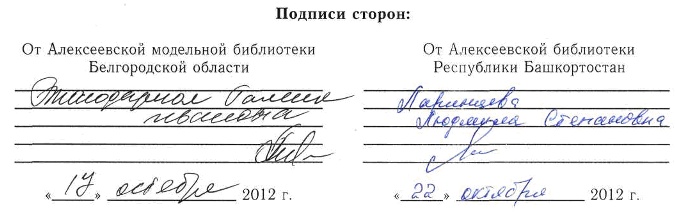 Подписи сторон:
От Алексеевской модельной библиотеки
Белгородской области
Галина
ивановна
«17» октября 2012 г.
От Алексеевской библиотеки
Республики Башкортостан
Ларинцева
Людмила Степановна
«22» октября 2012 г.